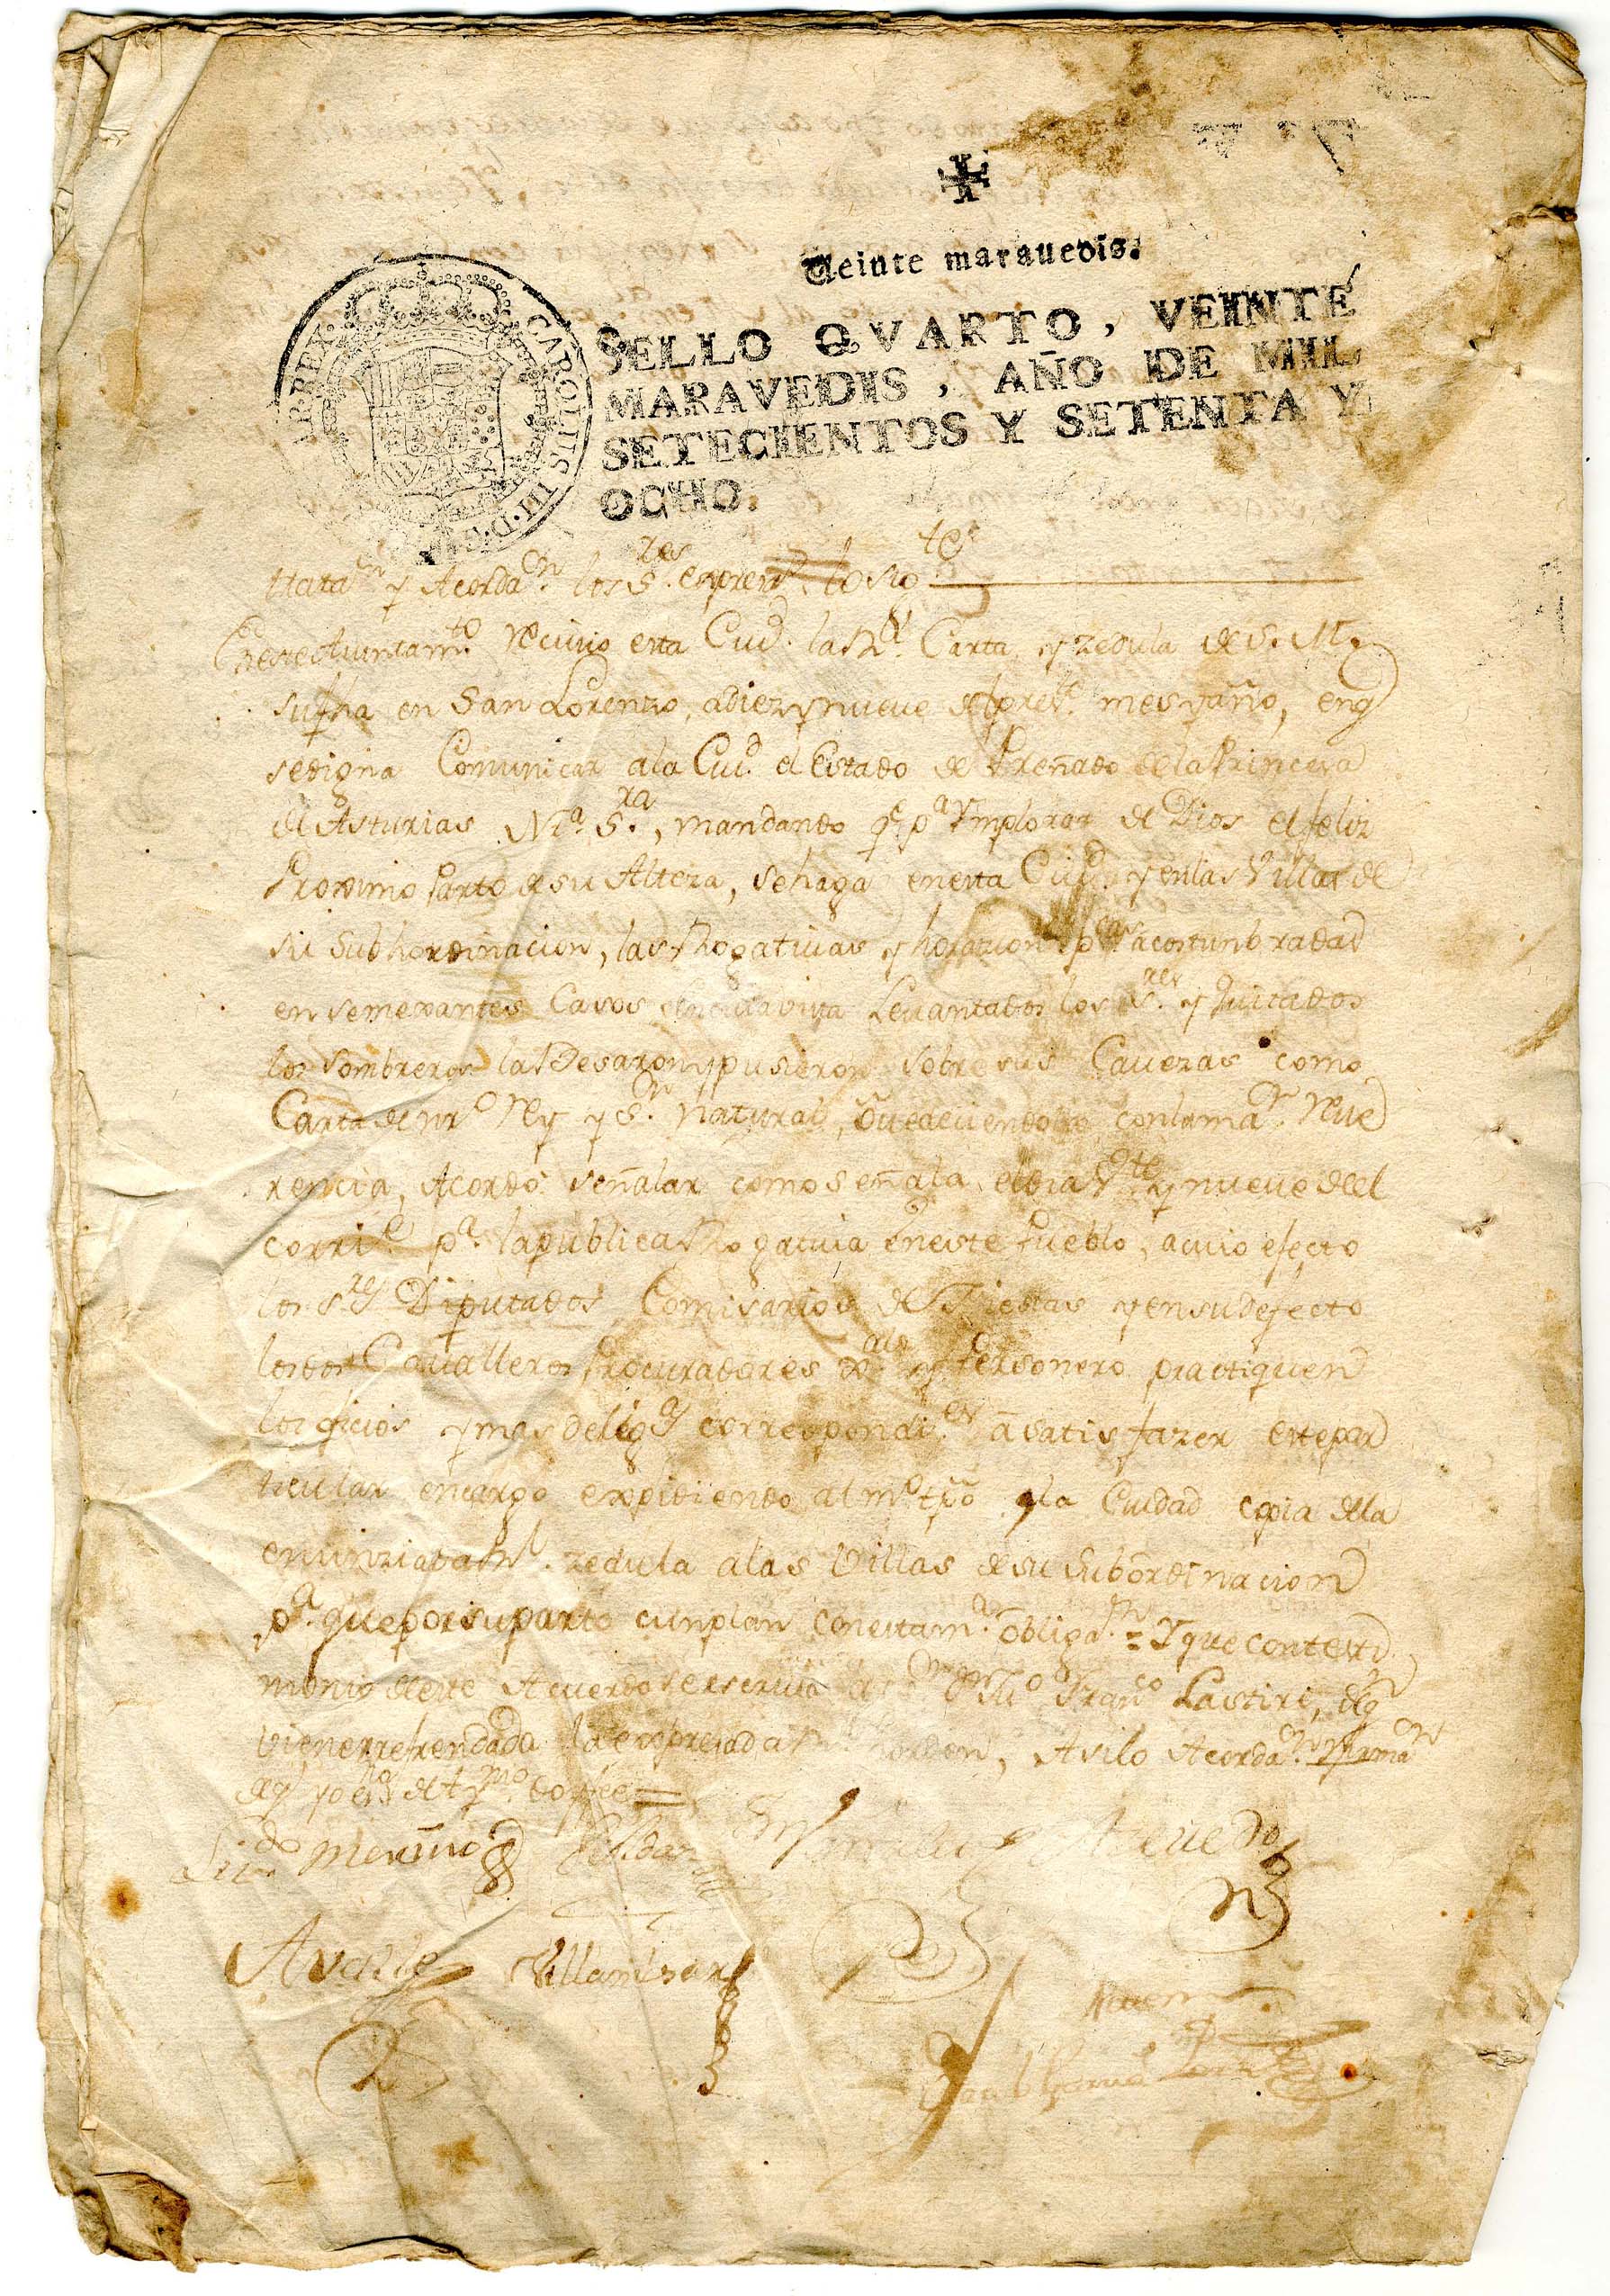 Veinte maravedis.
SELLO QVARTO, VEINTE
MARAVEDIS, AÑO DE MIL
SETECIENTOS Y SETENTA Y
OCHO.
CAROLUS III. D. G.
R. REX.
ttata.on y Acorda.on los S.res expres. lo sig.te
En este Auntam.to recivio esta Ciud. la Rl. Carta, y zedula de S. M.
su fha en San Lorenzo, a diez y nueve del pres.te mes y año, en q
se digna Comunicar a la Ciud. el Estado de Preñado de la Princesa
de Asturias Nra. S.ra, mandando q.e p.a Ymplorar de Dios el feliz
Proximo Parto de su Alteza, se haga en esta Ciud. y en las Villas de
su Subhordinacion, las Rogativas y horazion. p.cas acostunbradas
en semexantes Casos, en cuia vista Levantados los S.res y quitados
los Sombreros la Besaron y pusieron sobre sus Cavezas como
Carta de nro Rey y S.or Natural, con la ma.or Reve
rencia, Acordó señalar como señala el dia V.te y nueve del
corri.te p.a la publica Rogativa en este Pueblo, a cuio efecto
los S.res Diputados Comisarios de Fiestas y en su defecto
los dos Cavalleros Procuradores G.ales y Personero practiquen
los oficios y mas delig.as correspondi.es a satisfazer este par
ticular encargo expidiendo al m.o tpo. la Ciudad copia de la
enunziada Rl. zedula a las Villas de su subordinacion
p.a que por su parte cunplan con esta m.a obliga.on = Y que con testi
monio de este Acuerdo se escriva Fran.co Lastiri, de q.n
viene refrendada la expresada orden, Asi lo Acorda.on y firma.on
de q.e yo es.no de Ay.mo doy fee =
Liz.do Merino
Azevedo
Villamizar